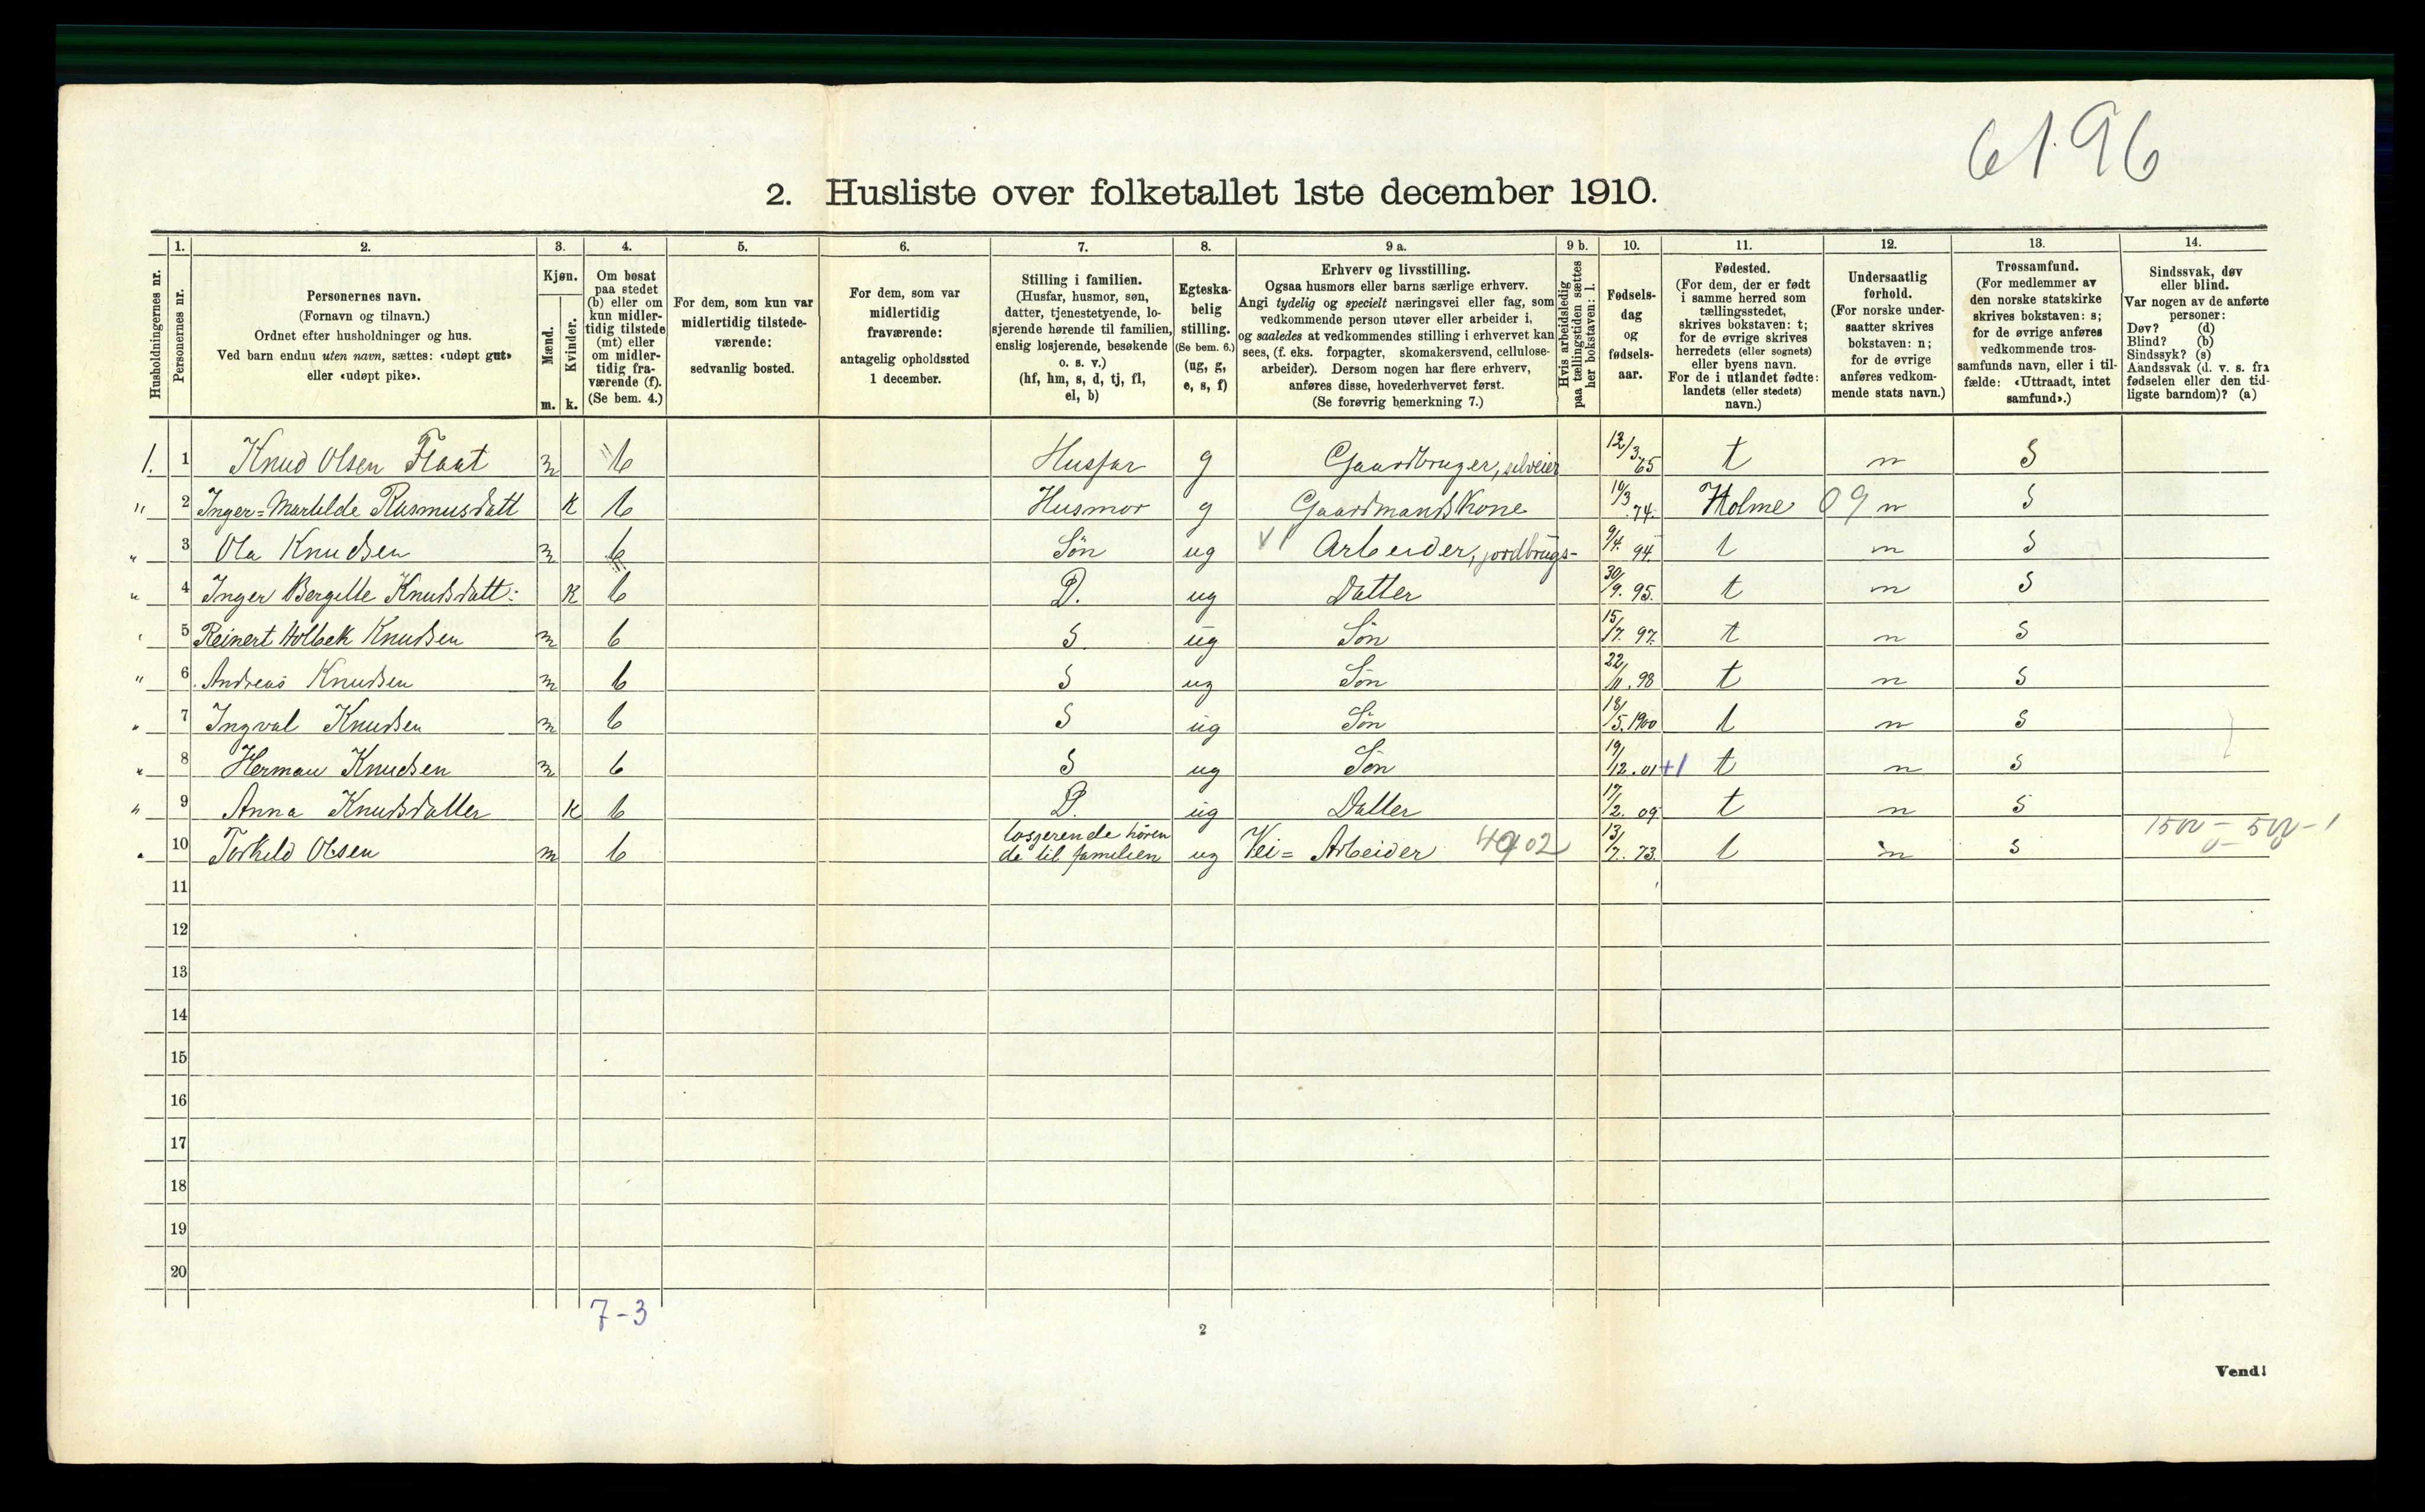 61.96
2. Husliste over folketallet 1ste december 1910.
Husholdningernes nr.
1.
Personernes nr.
2.
Personernes navn.
(Fornavn og tilnavn.)
Ordnet efter husholdninger og hus.
Ved barn endnu uten navn, sættes: «udøpt gut»
eller «udøpt pike».
3.
Kjøn.
Mænd.
Kvinder.
m. k.
4.
Om bosat
paa stedet
(b) eller om
kun midler-
tidig tilstede
(mt) eller
om midler-
tidig fra-
værende (f).
(Se bem. 4.)
5.
For dem, som kun var
midlertidig tilstede-
værende:
sedvanlig bosted.
6.
For dem, som var
midlertidig
fraværende:
antagelig opholdssted
1 december.
7.
Stilling i familien.
(Husfar, husmor, søn,
datter, tjenestetyende, lo-
sjerende hørende til familien,
enslig losjerende, besøkende
o. s. v.)
(hf, hm, s, d, tj, fl,
el, b)
8.
Egteska-
belig
stilling.
(Se bem. 6.)
(ug, g,
e, s, f)
9 a.
Erhverv og livsstilling.
Ogsaa husmors eller barns særlige erhverv.
Angi tydelig og specielt næringsvei eller fag, som
vedkommende person utøver eller arbeider i,
og saaledes at vedkommendes stilling i erhvervet kan
sees, (f. eks. forpagter, skomakersvend, cellulose-
arbeider). Dersom nogen har flere erhverv,
anføres disse, hovederhvervet først.
(Se forøvrig bemerkning 7.)
9 b.
Hvis arbeidsledig
paa tællingstiden sættes
her bokstaven: l.
10.
Fødsels-
dag
og
fødsels-
aar.
11.
Fødested.
(For dem, der er født
i samme herred som
tællingsstedet,
skrives bokstaven: t;
for de øvrige skrives
herredets (eller sognets)
eller byens navn.
For de i utlandet fødte:
landets (eller stedets)
navn.)
12.
Undersaatlig
forhold.
(For norske under-
saatter skrives
bokstaven: n;
for de øvrige
anføres vedkom-
mende stats navn.)
13.
Trossamfund.
(For medlemmer av
den norske statskirke
skrives bokstaven: s;
for de øvrige anføres
vedkommende tros-
samfunds navn, eller i til-
fælde: «Uttraadt, intet
samfund».)
14.
Sindssvak, døv
eller blind.
Var nogen av de anførte
personer:
Døv? (d)
Blind? (b)
Sindssyk? (s)
Aandssvak (d. v. s. fra
fødselen eller den tid-
ligste barndom)? (a)
1. 1 Knud Olsen Flaat m b Husfar g Gaardbruger, selveier 12/3 65 t n S
" 2 Inger=Marthilde Rasmusdatt k b Husmor g Gaardmandskone 10/3 .74. Holme 09 n S
" 3 Ola Knudsen m b Søn ug Arbeider, jordbrugs- 9/4. 94. t n S
" 4 Inger Bergitte Knudsdatt: k b D. ug Datter 30/9. 95. t n S
" 5 Reinert Holbek Knudsen m b S. ug Søn 15/7. 97. t n S
" 6 Andreas Knudsen m b S ug Søn 22/11. 98 t n S
" 7 Ingval Knudsen m b S ug Søn 18/5. 1900 t n S
" 8 Herman Knudsen m b S ug Søn 19/12. 01 +1 t n S
" 9 Anna Knudsdatter k b D. ug Datter 17/2. 09 t n S
" 10 Torkild Olsen m b losjerende høren
de til familien ug Vei= Arbeider 4902 13/7. 73. t n S 1500 - 500 - 1
11
12
13
14
15
16
17
18
19
20
7-3
2
Vend!